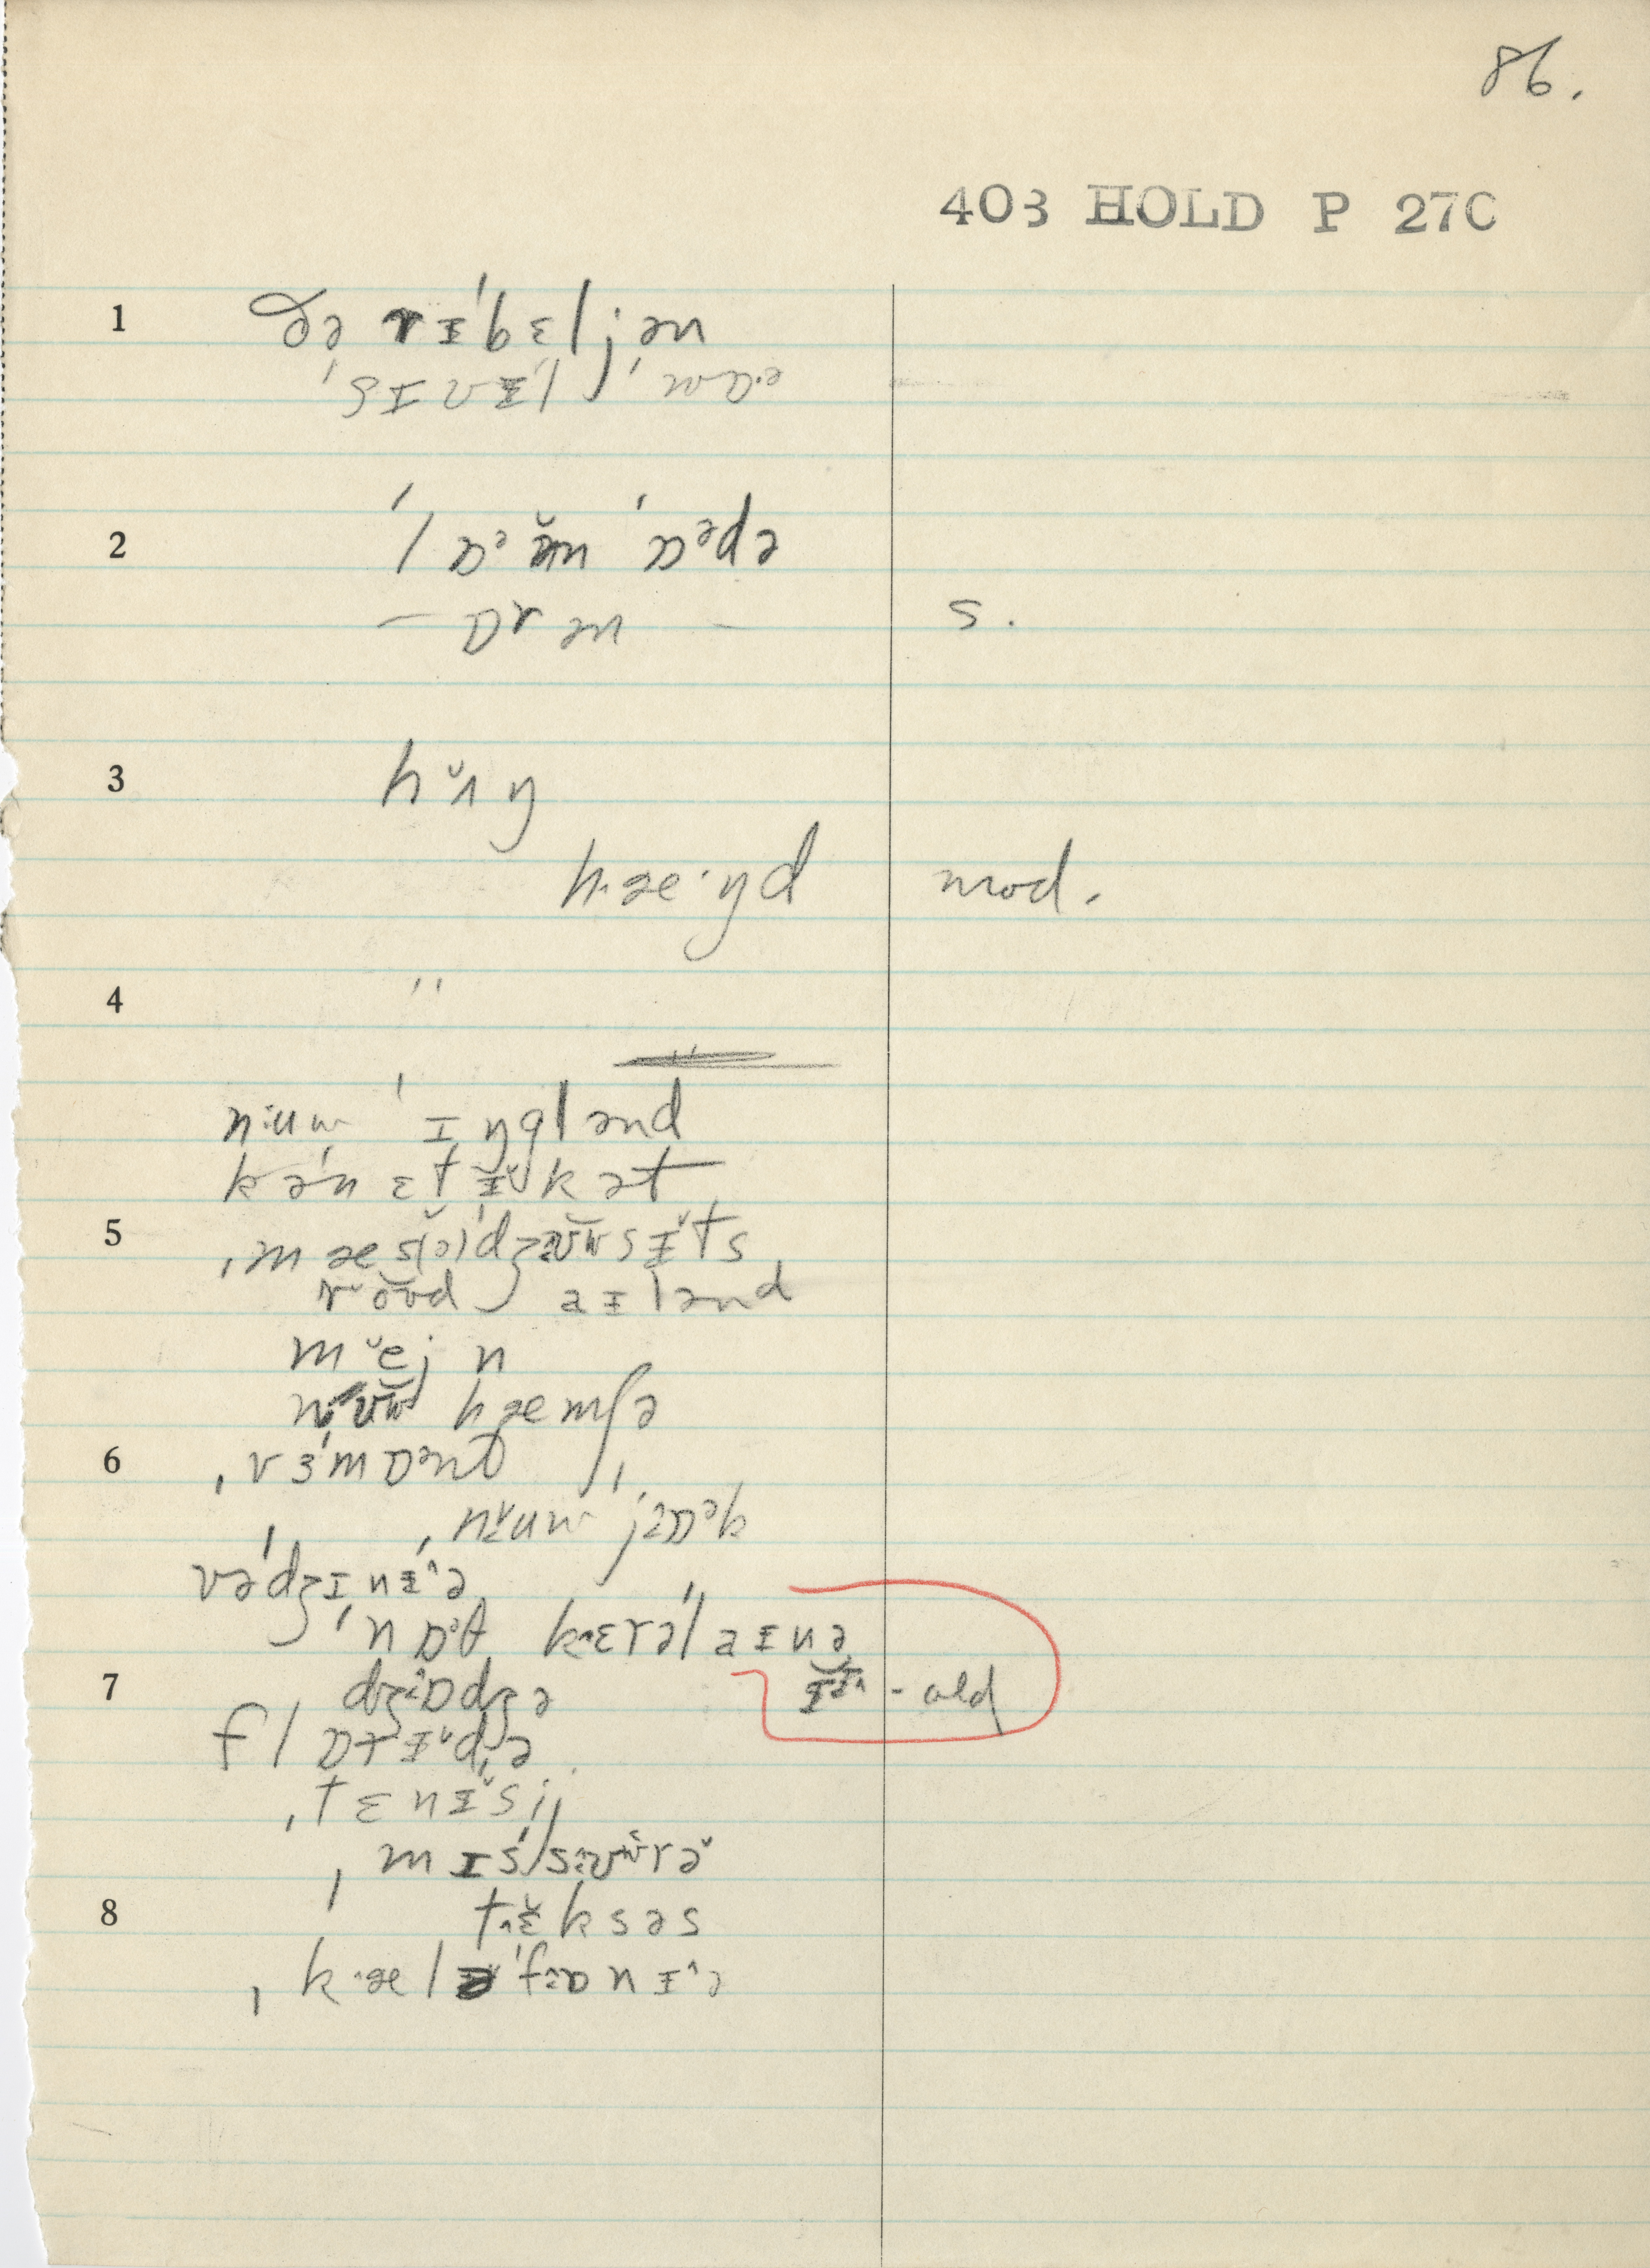 86.
403 HOLD P 27C
1 ðə rɪ́bɛljən
ˌsɪvɪ́l
2 ˈlɒᵊn ˈɒᵊdə
– ɒrən – s.
3 hʌ̌ŋ
hæ·ŋd mod.
4 ″
n·uw ˈɪŋglənd
kənɛtɪ̌kət
5 ˌmæs(ə)dʒʊwsɪ̌ts
roʊd aɪlənd
mˇejn
hæmʃə
6 ˌvɜ́mɒᵊnt
ˌnɪ̌uw jɒᵊk
vədʒɪnɪ́ˆə
ˈnɒᵊθ kɛrəlaɪnə
7 dʒɒdʒə ɪ̌ - old
flɒrɪ̌də
ˌtɛnɪ̌sij
ˌmɪsˈsʊwrəˇ
8 tɛ̌ksəs
ˌkælˈfɒnɪˆə